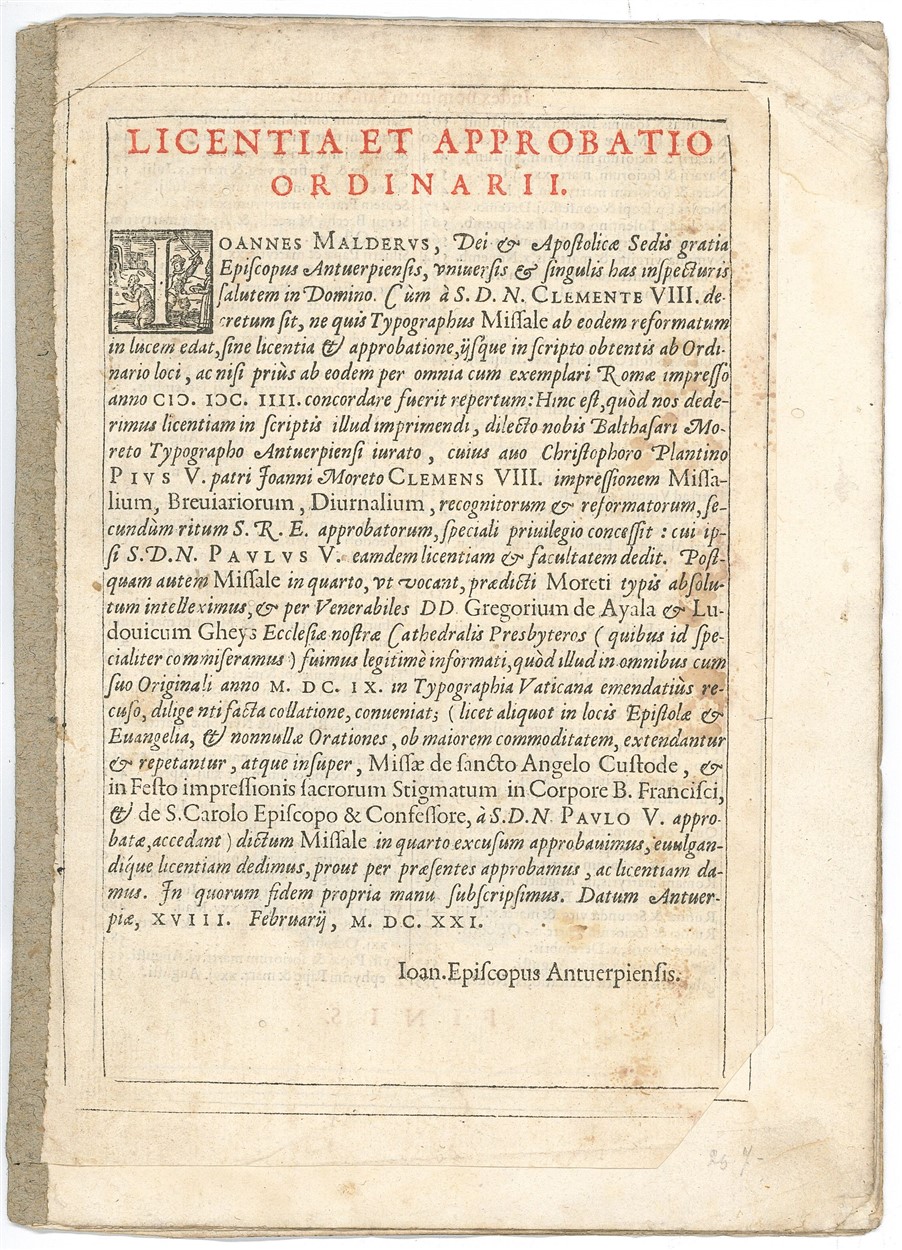 LICENTIA ET APPROBATIO
ORDINARII.
IOANNES MALDERVS, Dei & Apoſtolicæ Sedis gratia
Epiſcopus Antuerpienſis, vniuerſis & ſingulis has inſpecturis
ſalutem in Domino. Cùm à S. D. N. CLEMENTE VIII. de-
cretum ſit, ne quis Typographus Miſſale ab eodem reformatum
in lucem edat, ſine licentia & approbatione, ijſque in ſcripto obtentis ab Ordi-
nario loci, ac niſi priùs ab eodem per omnia cum exemplari Romæ impreſſo
anno CIↃ. IↃC. IIII. concordare fuerit repertum: Hinc eſt, quòd nos dede-
rimus licentiam in ſcriptis illud imprimendi, dilecto nobis Balthaſari Mo-
reto Typographo Antuerpienſi iurato, cuius auo Chriſtophoro Plantino
PIVS V. patri Joanni Moreto CLEMENS VIII. impreſſionem Miſſa-
lium, Breuiariorum, Diurnalium, recognitorum & reformatorum, ſe-
cundùm ritum S. R. E. approbatorum, ſpeciali priuilegio conceſſit: cui ip-
ſi S.D.N. PAVLVS V. eamdem licentiam & facultatem dedit. Poſt-
quam autem Miſſale in quarto, vt vocant, prædicti Moreti typis abſolu-
tum intelleximus, & per Venerabiles DD. Gregorium de Ayala & Lu-
douicum Gheys Eccleſiæ noſtræ Cathedralis Presbyteros (quibus id ſpe-
cialiter commiſeramus) fuimus legitimè informati, quòd illud in omnibus cum
ſuo Originali anno M. DC. IX. in Typographia Vaticana emendatiùs re-
cuſo, diligenti facta collatione, conueniat; (licet aliquot in locis Epiſtolæ &
Euangelia, & nonnullæ Orationes, ob maiorem commoditatem, extendantur
& repetantur, atque inſuper, Miſſæ de ſancto Angelo Cuſtode, &
in Feſto impreſſionis ſacrorum Stigmatum in Corpore B. Franciſci,
& de S. Carolo Epiſcopo & Confeſſore, à S.D.N. PAVLO V. appro-
batæ, accedant) dictum Miſſale in quarto excuſum approbauimus, euulgan-
díque licentiam dedimus, prout per præſentes approbamus, ac licentiam da-
mus. In quorum fidem propria manu ſubſcripſimus. Datum Antuer-
piæ, XVIII. Februarij, M. DC. XXI.
Ioan. Epiſcopus Antuerpienſis.